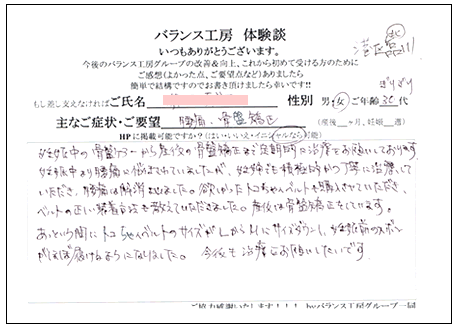 バランス工房 体験談
いつもありがとうございます。
今後のバランス工房グループの改善&向上、これから初めて受ける方のために
ご感想(よかった点、ご要望点など)ありましたら
簡単で結構ですのでお書き頂けましたら幸いです!!
もし差し支えなければご氏名 性別 男・女 ご年齢 代
主なご症状・ご要望 腰痛・骨盤矯正 (産後 ヶ月、妊娠 週)
HPに掲載可能ですか?(はい・いいえ・イニシャルなら可能)
妊娠中の骨盤ケアーから産後の骨盤矯正まで定期的に治療をお願いしております。
妊娠中より腰痛に悩まされていましたが、妊婦でも積極的かつ丁寧に治療して
いただき、腰痛は解消しました。 トコちゃんベルトも購入させていただき、
ベルトの正しい装着方法も教えていただきました。産後は骨盤矯正もしています。
あっという間にトコちゃんベルトのサイズがLからMにサイズダウンし、妊娠前のズボン
がほぼ履けるようになりました。今後も治療をお願いしたいです。
ご協力感謝いたします!!! byバランス工房グループ一同